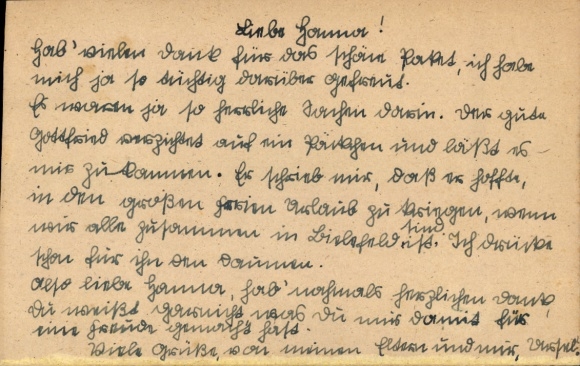 Liebe Hanna!
Hab' vielen Dank für das schöne Paket, ich habe
mich ja so tüchtig darüber gefreut.
Es waren ja so herrliche Sachen darin. Der gute
Gottfried verzichtet auf ein Päckchen und läßt es
mir zukommen. Er schrieb mir, daß er hoffte,
in den großen Ferien Urlaub zu kriegen, wenn
wir alle zusammen in Bielefeld sind. Ich drücke
schon für ihn den Daumen.
Also liebe Hanna, hab' nochmals herzlichen Dank,
Du weißt garnicht was Du mir damit für
eine Freude gemacht hast.
Viele Grüße, von meinen Eltern und mir, Ursel.